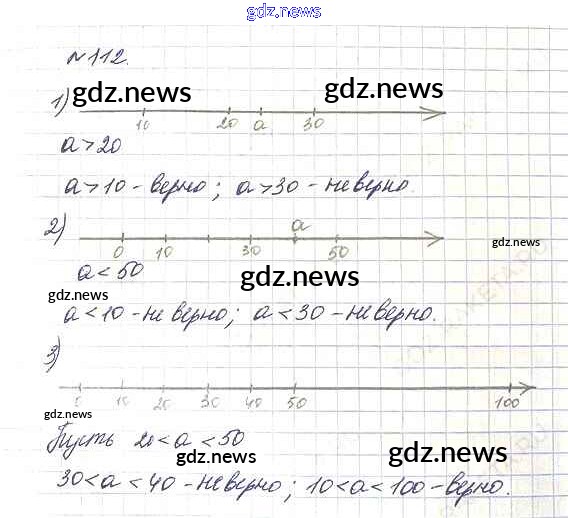 gdz.news
№112.
1) gdz.news gdz.news
10 20 a 30
a > 20
a > 10 - верно; a > 30 - неверно.
2) a
0 10 30 50
gdz.news
a < 50
gdz.news
gdz.news
a < 10 - неверно; a < 30 - неверно.
3)
10 20 30 40 50 100
gdz.news
Пусть 20 < a < 50
gdz.news gdz.news
30 < a < 40 - неверно; 10 < a < 100 - верно.